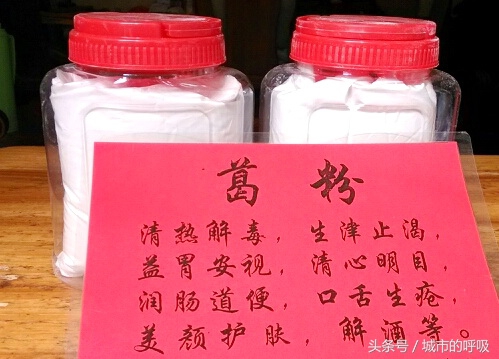 葛粉
清热解毒，生津止渴，
益胃安视，清心明目，
润肠道便，口舌生疮，
美颜护肤，解酒等。
头条号/城市的呼吸